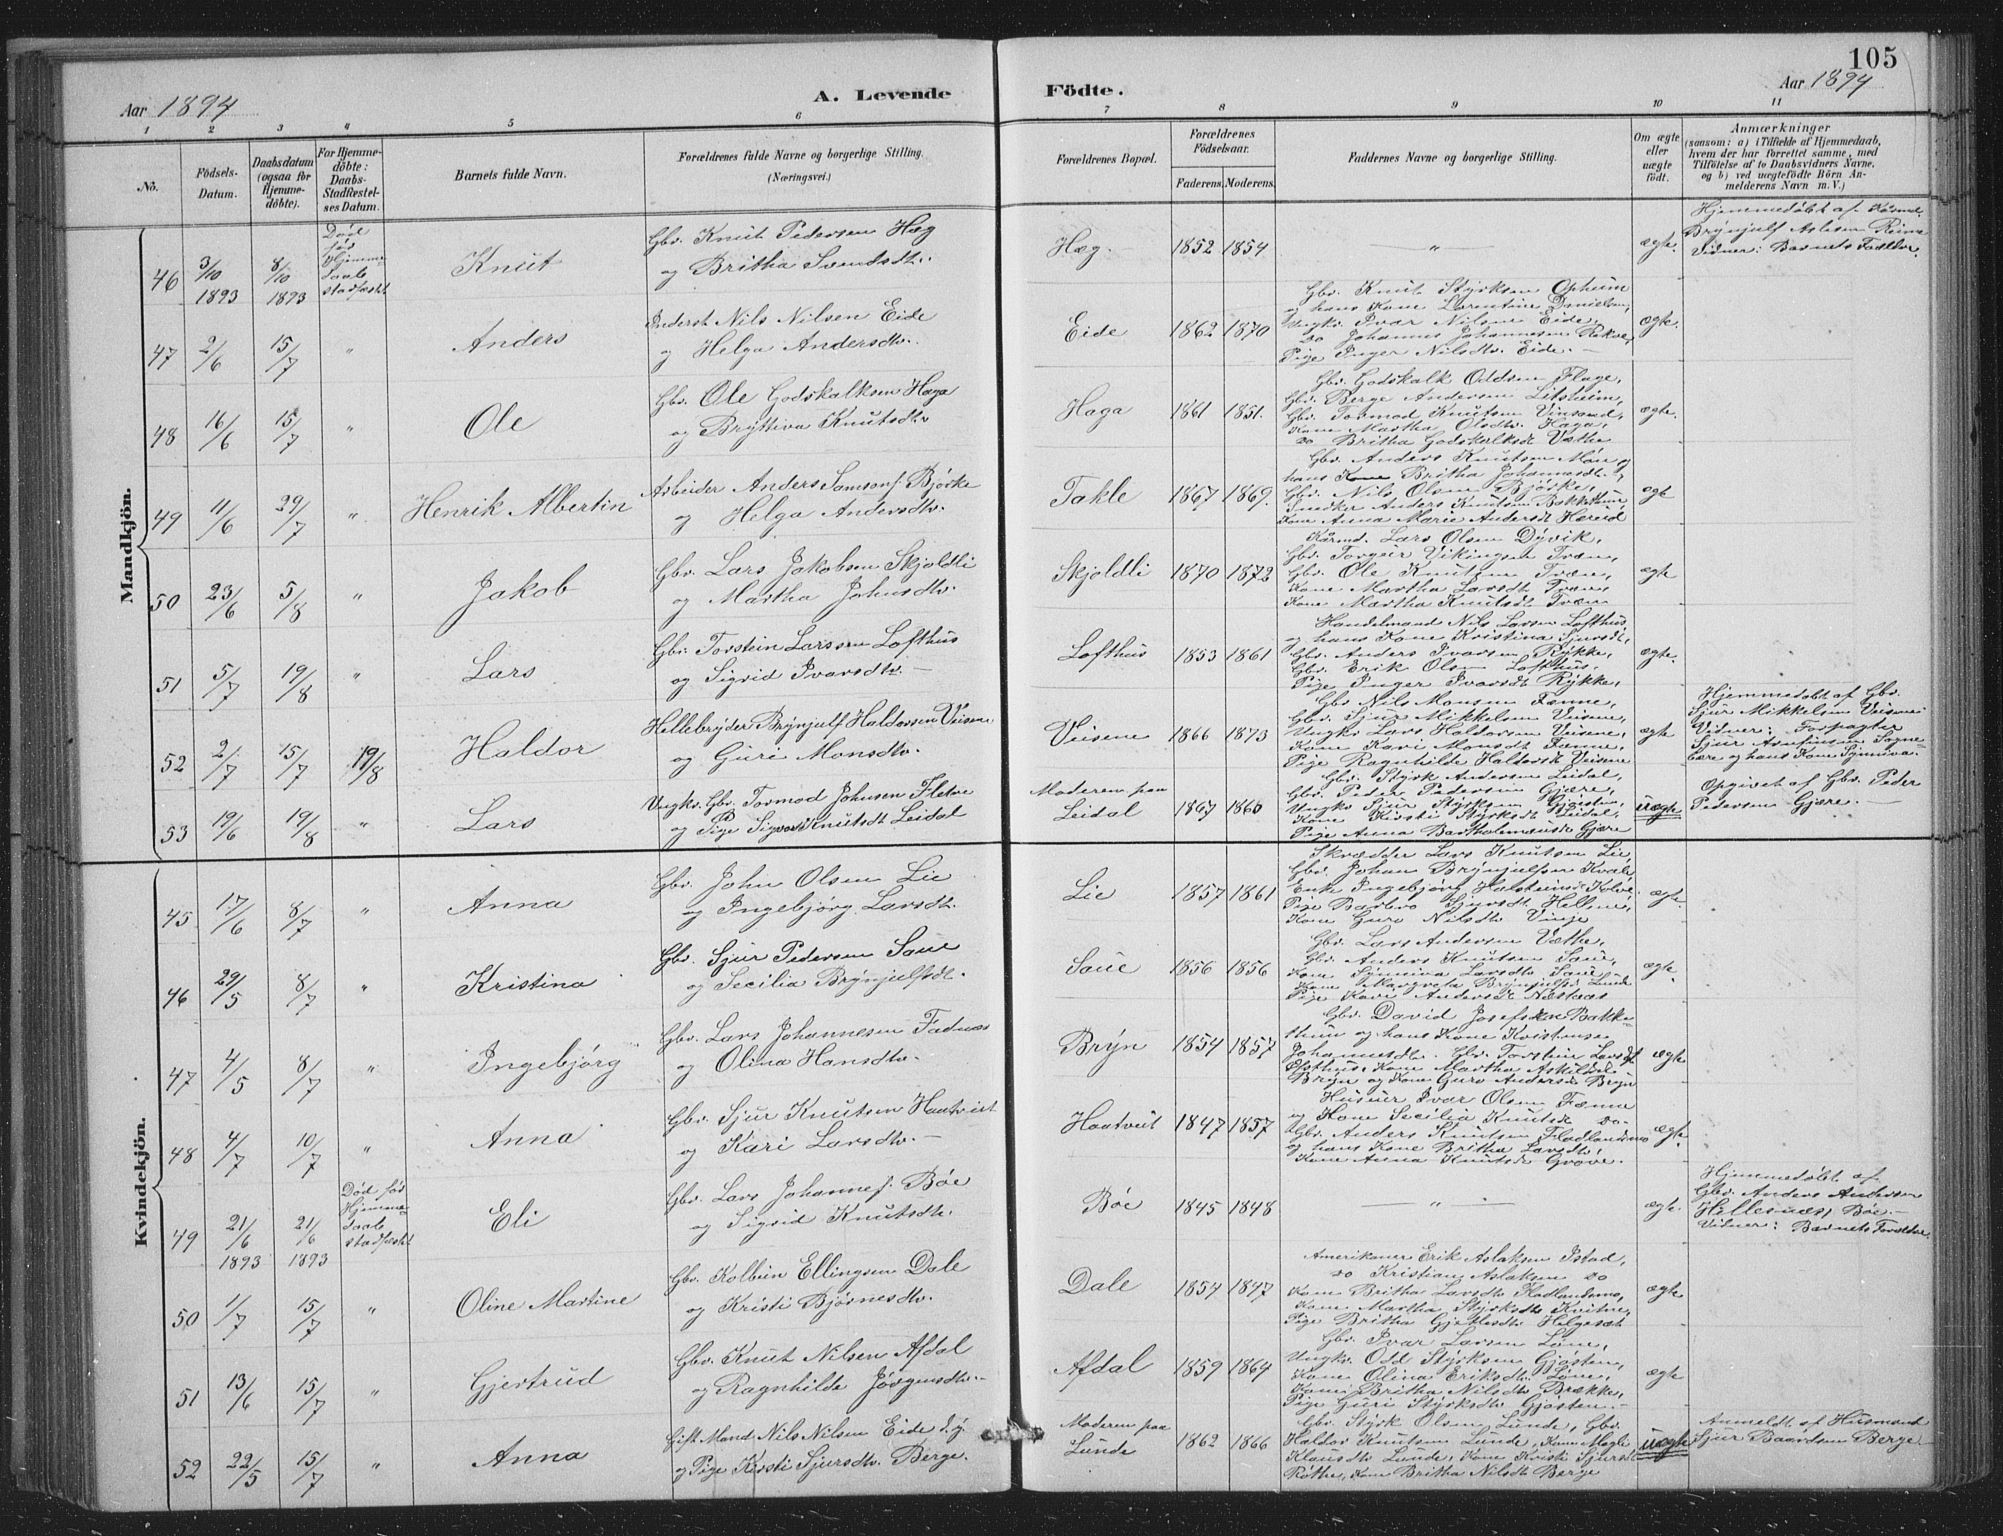 105
Aar 1894
A. Levende
Födte.
Aar 1894
1 2 3 4 5 6 7 8 9 10 11
No.
Födsels-
Datum.
Daabsdatum
(ogsaa for
Hjemme-
döbte).
For Hjemme-
döbte:
Daabs-
Stadfæstel-
ses Datum.
Barnets fulde Navn.
Forældrenes fulde Navne og borgerlige Stilling.
(Næringsvei.)
Forældrenes Bopæl.
Forældrenes
Födselsaar.
Faderens. Moderens.
Faddernes Navne og borgerlige Stilling.
Om ægte
eller
uægte
födt.
Anmærkninger
(saasom: a) i Tilfælde af Hjemmedaab,
hvem der har forrettet samme, med
Tilföielse af to Daabsvidners Navne,
og b) ved uægtefödte Börn An-
melderens Navn m. V.)
Mandkjön.
46 3/10 1893 8/10 1893 Död
før
Hjemme-
daab
stadfæstet
Knut
Gbr. Knut Pedersen Hæg
og Britha Svendsdtr.
Hæg. 1852 1854 " ægte.
Hjemmedöbt af
Brynjulf Aslesen
Vidner: Barnets Forældre.
47 2/6 15/7 " Anders
Inderst Nils Nilsen Eide
og Helga Andersdtr.
Eide 1862 1870
Gbr. Knut Styrksen Opheim
og hans Kone Larentine
Ungk. Ivar Nilsen Eide,
Do Johannes Johannesen Rekve,
Pige Inger Nilsdtr. Eide.
ægte.
48 16/6 15/7 " Ole
Gbr. Ole Godskalksen Haga
og Bryttiva Knutsdtr
Haga 1861 1851.
Gbr. Godskalk Oddsen Flage,
Gbr. Berge Andersen
Gbr. Tormod Knutsen Vinsand,
Kone Martha Olsdtr. Haga,
Do Britha Godskalksdt Væthe
ægte.
49 11/6 29/7 " Henrik Albertin
Arbeider Anders Samsons. Bjørke
og Helga Andersdtr.
Takle 1867 1869.
Gbr. Anders Knutsen Møn og
hans Kone Britha Johannesdtr.,
Gbr. Nils Olsen Bjørke,
Snedker Anders Knutsen Bakkethun,
Kone Anna Marie Andersdt Hereid
ægte
50 23/6 5/8 " Jakob
Gbr. Lars Jakobsen Skjoldli
og Martha Johnsdtr.
Skjoldli 1870 1872
Kårmd. Lars Olsen Dyvik,
Gbr. Torgeir Vikingsen Tvæn,
Gbr. Ole Knutsen Tvæn,
Kone Martha Larsdt Tvæn
Kone Martha Knutsdt Tvæn
ægte
51 5/7 19/8 " Lars
Gbr. Torstein Larssen Lofthus
og Sigrid Ivarsdtr.
Lofthus 1853 1861
Handelmand Nils Larsen Lofthus
og hans Kone Kristina Sjursdt.,
Gbr. Anders Ivarsen Rykke,
Gbr. Erik Olsen Lofthus,
Pige Inger Ivarsdt Rykke,
ægte.
52 2/7 15/7 19/8 Haldor
Hellebryder Brynjulf Haldorsen Veisene
og Guri Monsdtr.
Veisene 1866 1873
Gbr Nils Monsen Fænne,
Gbr. Sjur Mikkelsen Veisene,
Ungk. Lars Haldorsen Veisene,
Kone Kari Monsdt Fænne,
Pige Ragnhilde Haldorsdt Veisene
ægte
Hjemmedöbt af Gbr.
Sjur Mikkelsen Veisene
Vidner: Forpagter
Sjur
og hans Kone Synneva
53 19/6 19/8 " Lars
Ungk. Gbr. Tormod Johnsen Fletre
og Pige Sigvor Knutsdt Leidal
Moderen paa
Leidal 1867 1860
Gbr. Styrk Andersen Leidal,
Gbr. Peder Pedersen Gjære,
Ungk. Sjur Styrksen Gjøsten,
Kone Kirsti Styrksdt Leidal,
Pige Anna Bartholomeusdt Gjære
uægte
Opgivet af Gbr. Peder
Pedersen Gjære.
Kvindekjön.
45 17/6 8/7 " Anna
Gbr. John Olsen Lie
og Ingebjörg Larsdt.
Lie 1857 1861
Skrædder Lars Knutsen Lie,
Gbr. Johan Brynjulfsen Kvale,
Enke Ingebjörg Halsteinsdt
Pige Barbro Sjursdt Helsene,
Kone Guro Nilsdtr Vinje
ægte.
46 29/5 8/7 " Kristina
Gbr. Sjur Pedersen Saue
og Secilia Brynjulfsdt.
Saue 1856 1856
Gbr. Lars Andersen Væthe,
Gbr. Anders Knutsen Saue,
Kone Synniva Larsdtr. Saue
Kone Margreta Brynjulfsd Lunde
Pige Kari Andersdt
ægte.
47 4/5 8/7 " Ingebjörg
Gbr. Lars Johannesen Fadnæs
og Olina Hansdtr.
Bryn 1854 1857
Gbr. David Josefsen Bakke-
thun og hans Kone Kristense
Johannesdt. Gbr. Torstein Larsen
Østhus, Kone Martha Askildsdt
Bryn og Kone Guro Andersdt Bryn
ægte
48 4/7 10/7 " Anna
Gbr. Sjur Knutsen Haatveit
og Kari Larsdtr.
Haatveit 1847 1857
Husmd Ivar Olsen Fænne
og Kone Secilia Knutsdt Do.
Gbr. Anders Knutsen Fladlandsmo
og hans Kone Britha Larsdtr.
Kone Anna Knutsdt Grove.
ægte.
49 21/6 1893 21/6 1893 Död før
Hjemme-
daab
stadfæstet
Eli
Gbr. Lars Johannes. Bøe
og Sigrid Knutsdtr.
Bøe 1845 1848 " ægte.
Hjemmedöbt af
Gbr. Anders Andersen
Hellesnes, Bøe.
Vidner: Barnets Forældre.
50 1/7 15/7 " Oline Martine
Gbr. Kolbein Ellingsen Dale
og Kristi Bjørnesdtr.
Dale 1854 1847
Amerikaner Erik Aslaksen Istad,
Do Kristian Aslaksen Do
Kone Britha Larsdt Fladlandsmo,
Kone Martha Styrksdt Kvitne,
Pige Britha Helgesæt
ægte
51 13/6 15/7 " Gjertrud
Gbr. Knut Nilsen Afdal
og Ragnhilde Jørgensdtr.
Afdal 1859 1864
Gbr. Ivar Larsen Løne,
Ungk. Odd Styrksen Gjøsten,
Kone Olina Eriksdt. Løne,
Kone Britha Nilsdtr Brække,
Pige Guri Styrksdt Gjøsten.
ægte
52 22/5 15/7 " Anna
Gift Mand Nils Nilsen Eide d.y.
og Pige Kirsti Sjursdtr. Berge.
Moderen paa
Lunde 1862 1866
Gbr. Styrk Olsen Lunde, Gbr.
Haldor Knutsen Lunde, Kone Magli
Klausdtr Lunde, Kone Kristi Sjursdt
Røthe, Kone Britha Nilsdt Berge
uægte
Anmeldt af Husmand
Sjur Baardsen Berge.